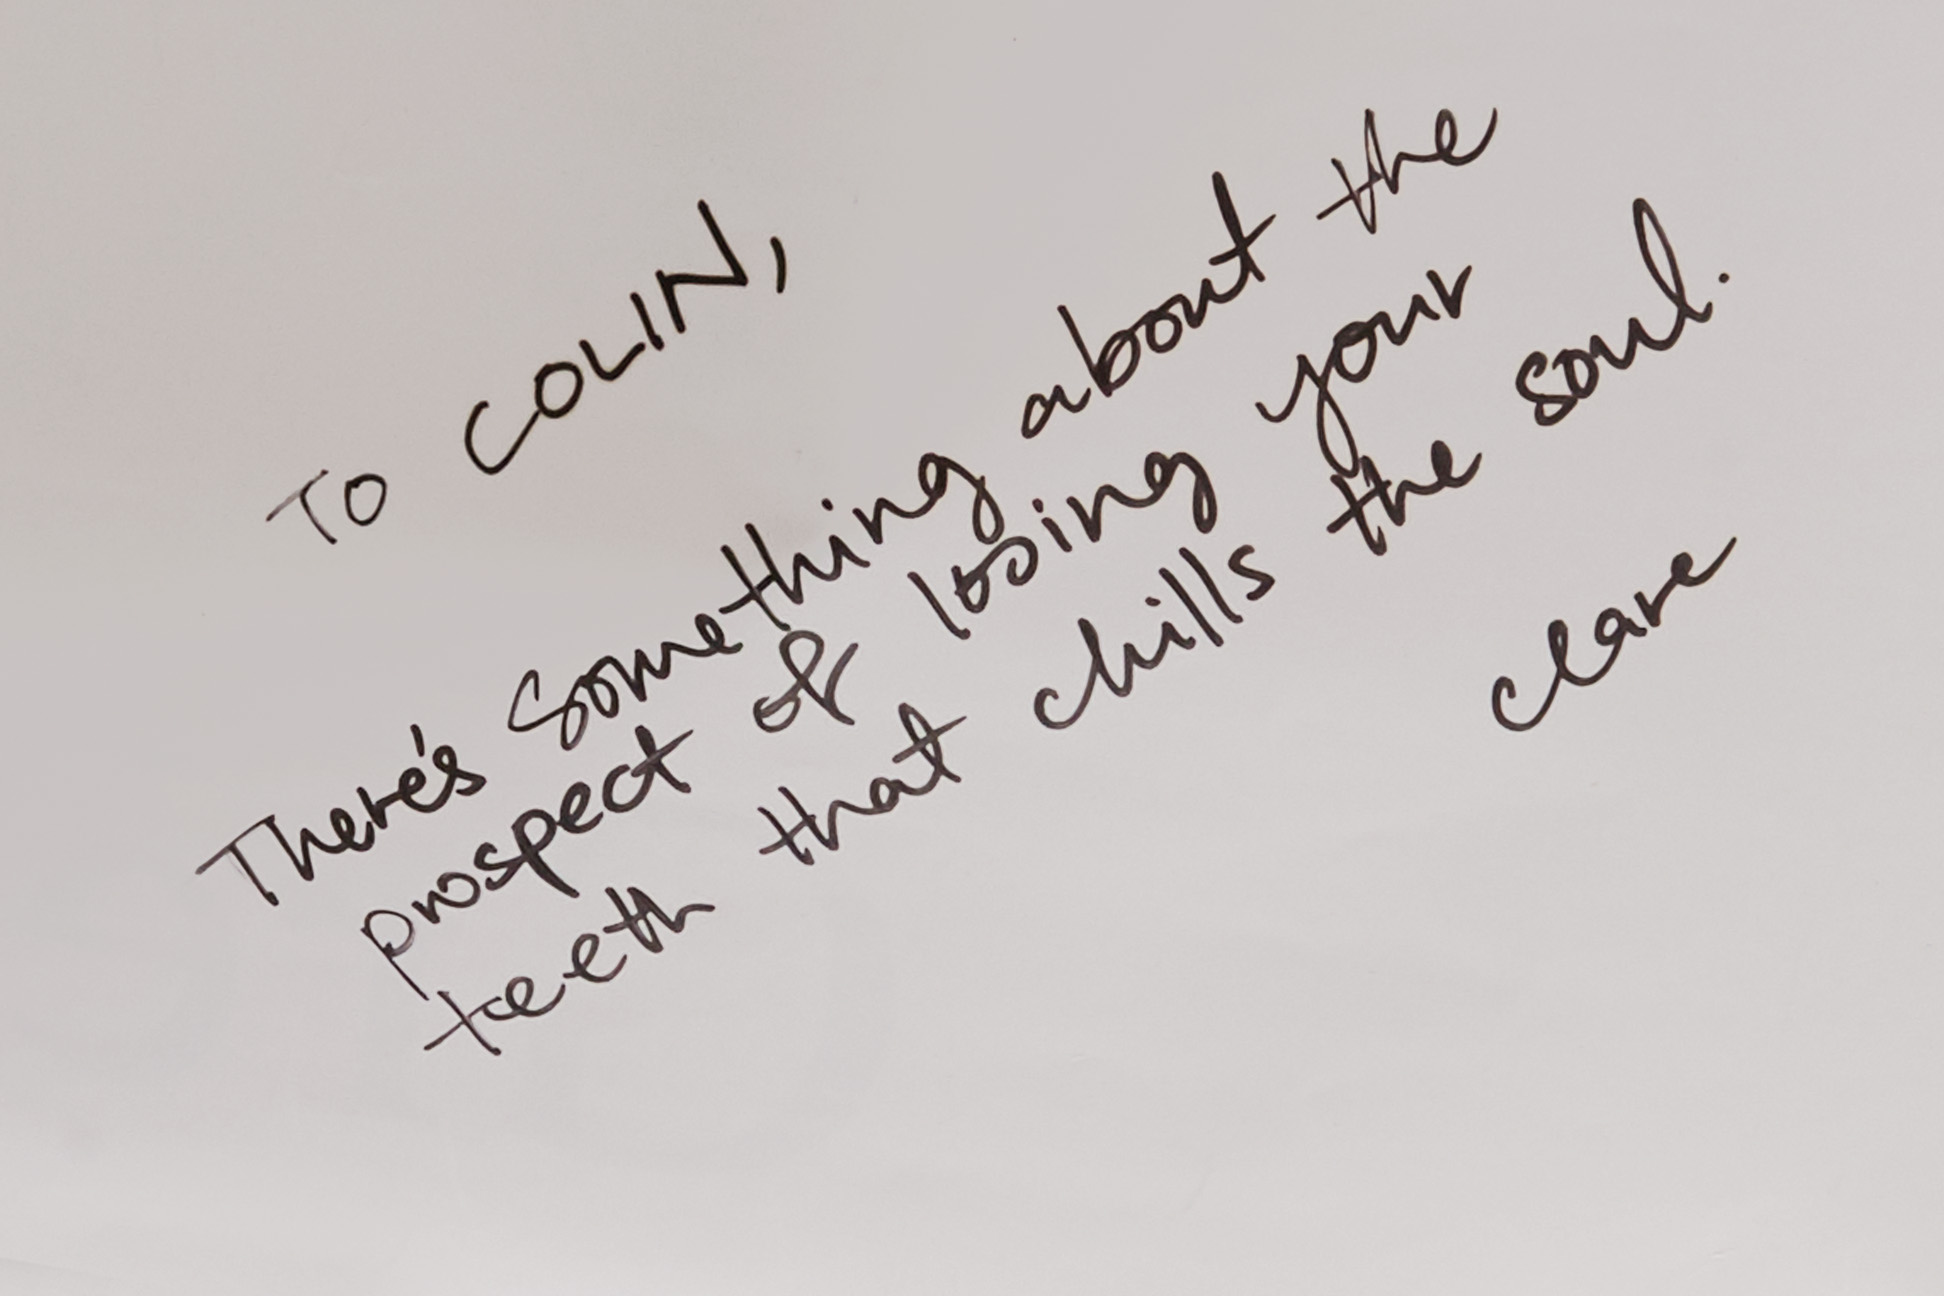 TO COLIN,
There's something about the
prospect of losing your
teeth that chills the soul.
clare